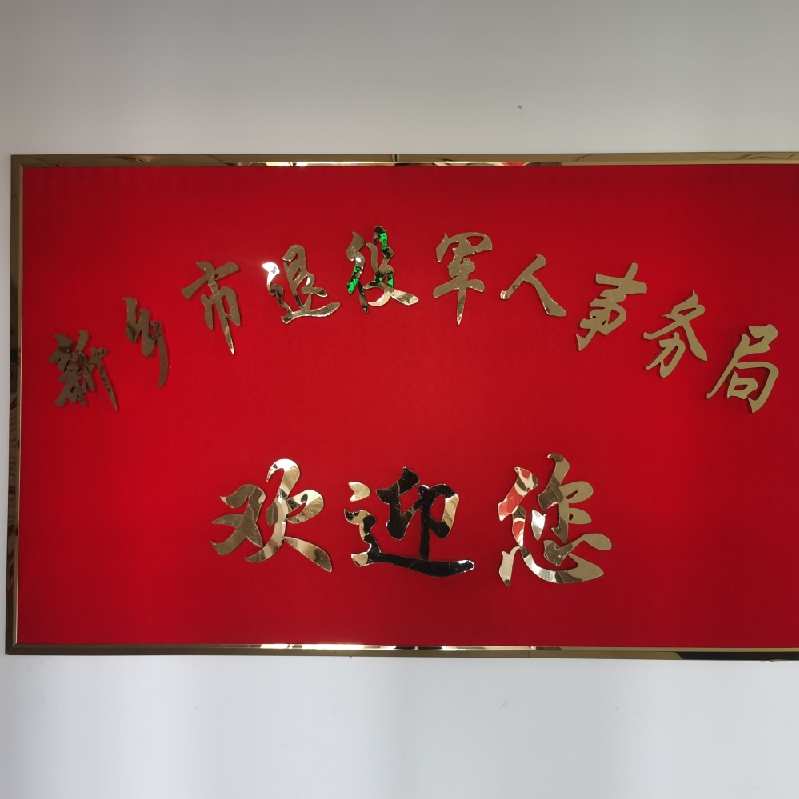 新乡市退役军人事务局
欢迎您